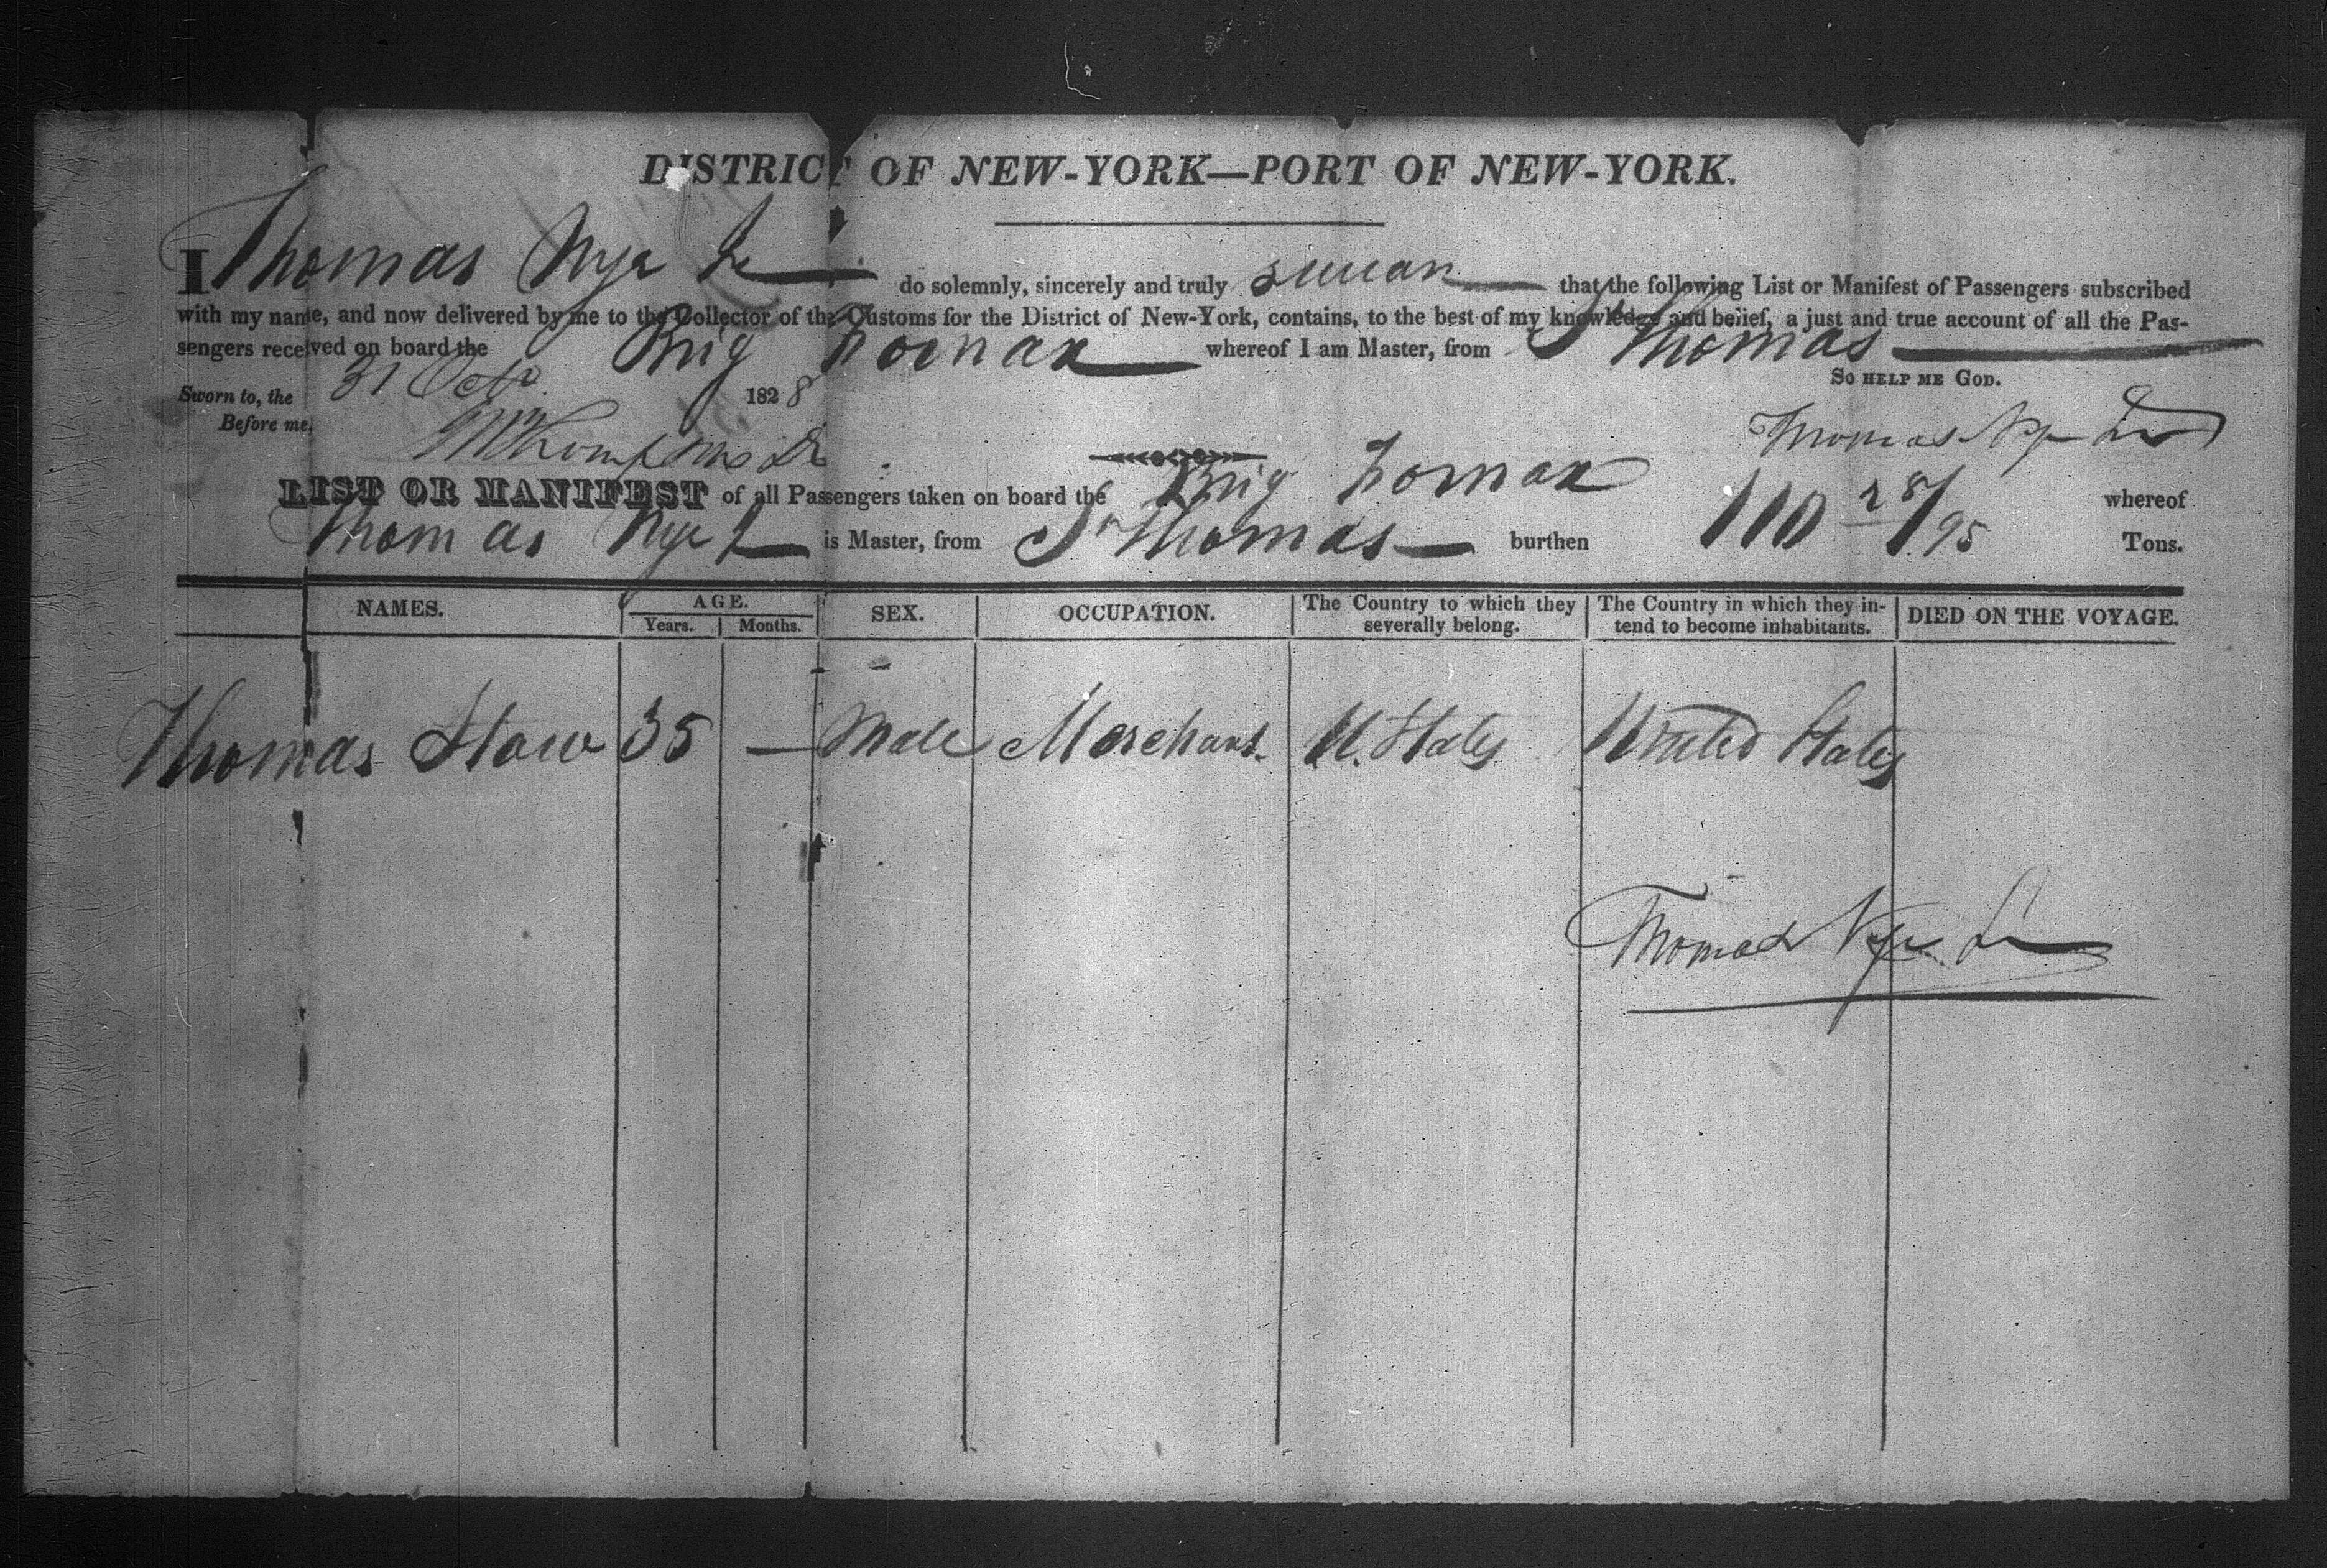 DISTRICT OF NEW-YORK—PORT OF NEW-YORK.
I Thomas Nye Jr do solemnly, sincerely and truly swear that the following List or Manifest of Passengers subscribed
with my name, and now delivered by me to the Collector of the Customs for the District of New-York, contains, to the best of my knowledge and belief, a just and true account of all the Pas-
sengers received on board the Brig whereof I am Master, from St Thomas
So HELP ME GOD.
Sworn to, the 31 Octo. 1828
Before me,
Thomas Nye Jr
LIST OR MANIFEST of all Passengers taken on board the Brig whereof
Thomas Nye Jr is Master, from St Thomas burthen 110 28/95 Tons.
NAMES. AGE. SEX. OCCUPATION. The Country to which they severally belong. The Country in which they in-tend to become inhabitants. DIED ON THE VOYAGE.
Years. Months.
Thomas 35 — Male Merchant U. States United States
Thomas Nye Jr